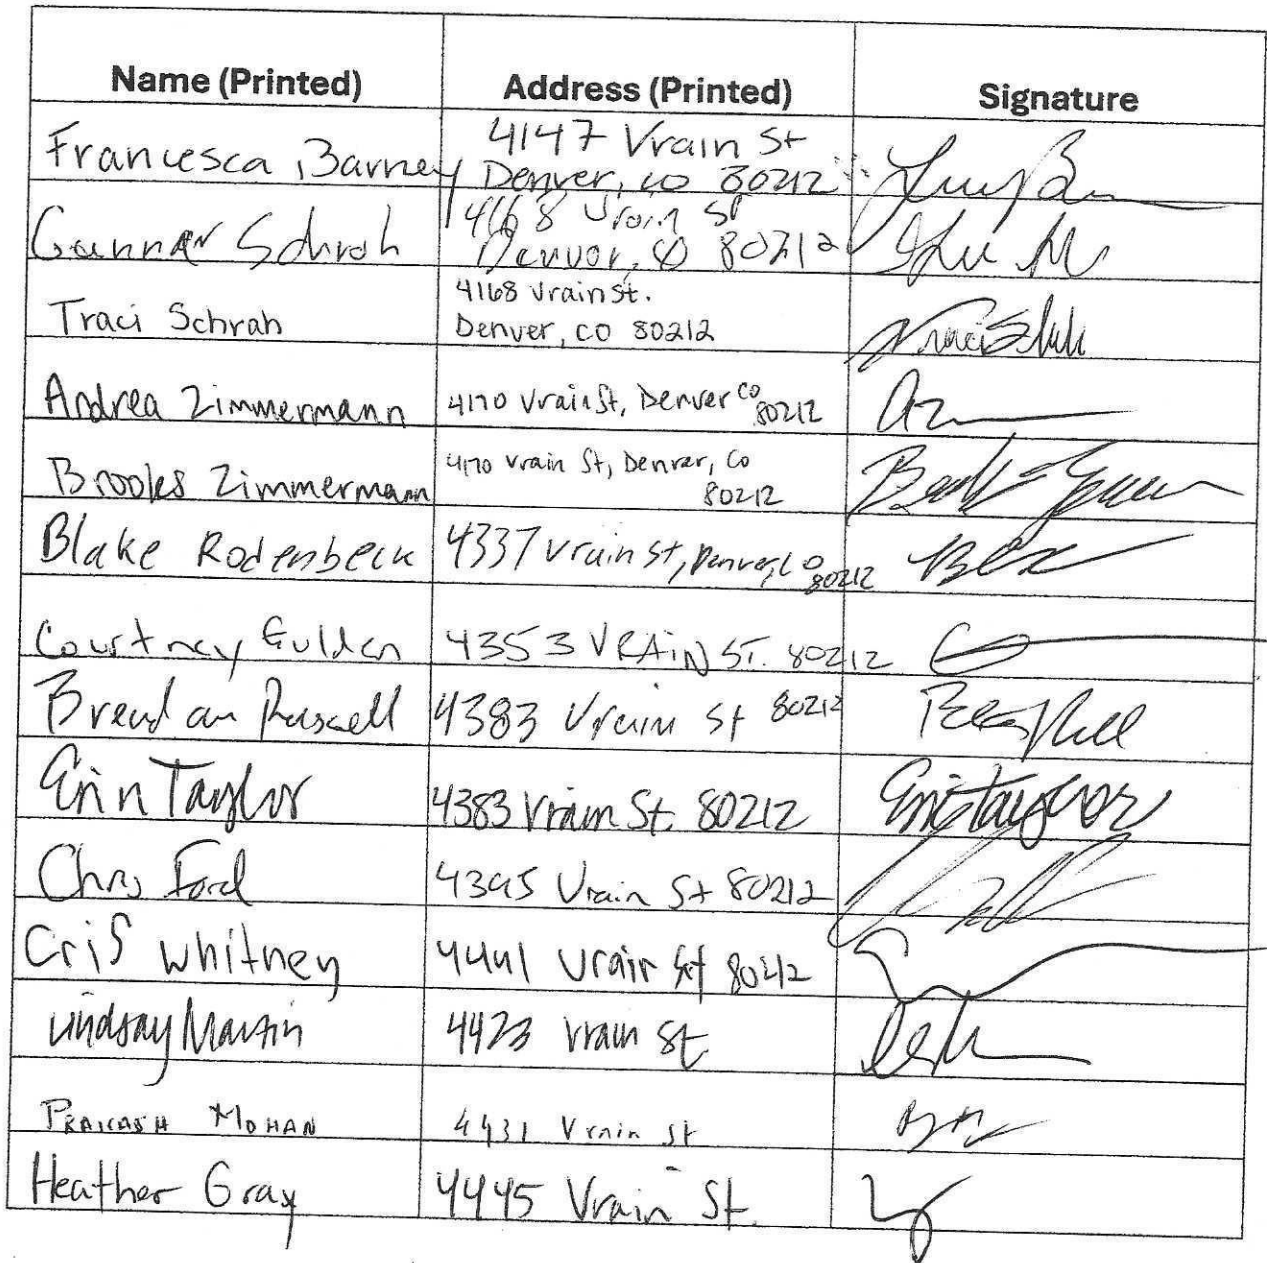 Name (Printed) Address (Printed) Signature
Francesca Barney 4147 Vrain St
Denver, CO 80212
Gunnar Schrah 4168 Vrain St
Denver, CO 80212
Traci Schrah 4168 Vrain St.
Denver, CO 80212
Andrea Zimmermann 4170 Vrain St, Denver CO
80212
Brooks Zimmermann 4170 Vrain St, Denver, Co
80212
Blake Rodenbeck 4337 Vrain St, Denver, CO
80212
Courtney Gulden 4353 VRAIN ST. 80212
Brendan Russell 4383 Vrain St 80212
Erin Taylor 4383 Vrain St. 80212
Chris Ford 4395 Vrain St 80212
Cris Whitney 4441 Vrain St 80212
Lindsay Martin 4423 Vrain St.
PRAKASH MOHAN 4431 Vrain St
Heather Gray 4445 Vrain St.